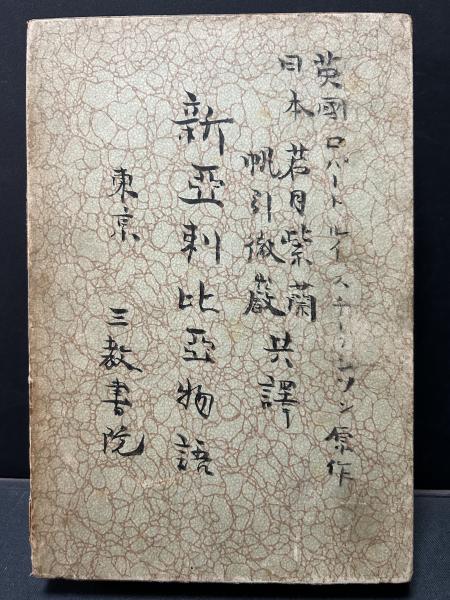 英國 ロバート ルイ スチーヴンソン 原作
日本 若月紫蘭
帆引徹巖 共譯
新亞剌比亞物語
東京 三教書院